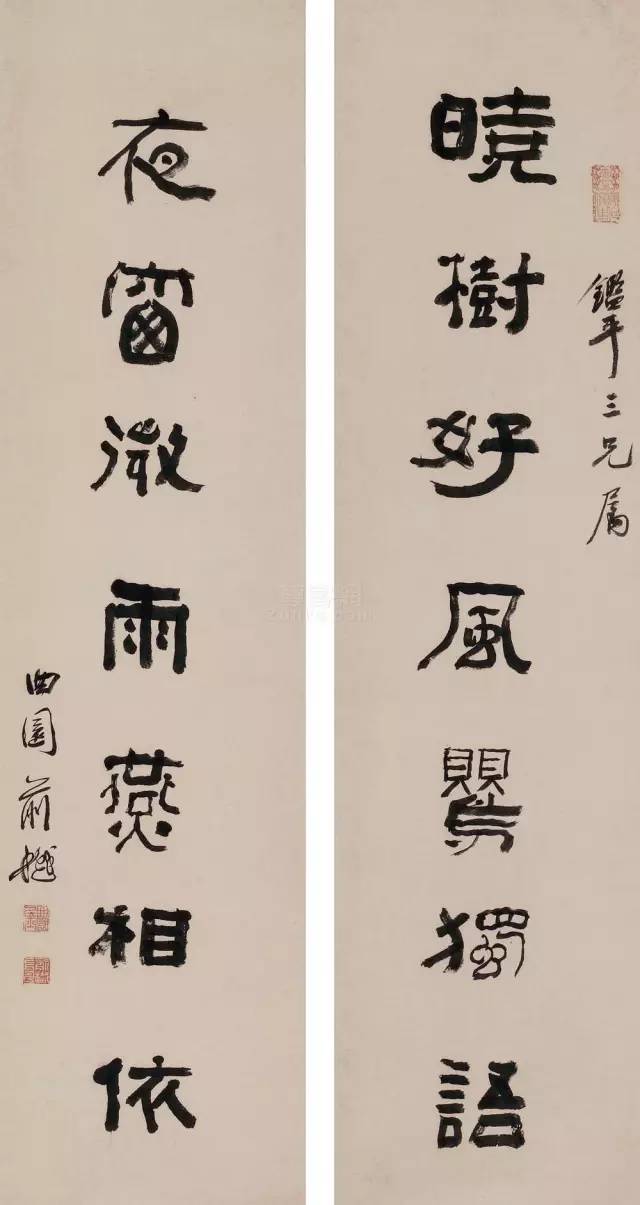 鑑平三兄屬
曉樹好風鸎獨語
夜窗微雨燕相依
曲園俞樾